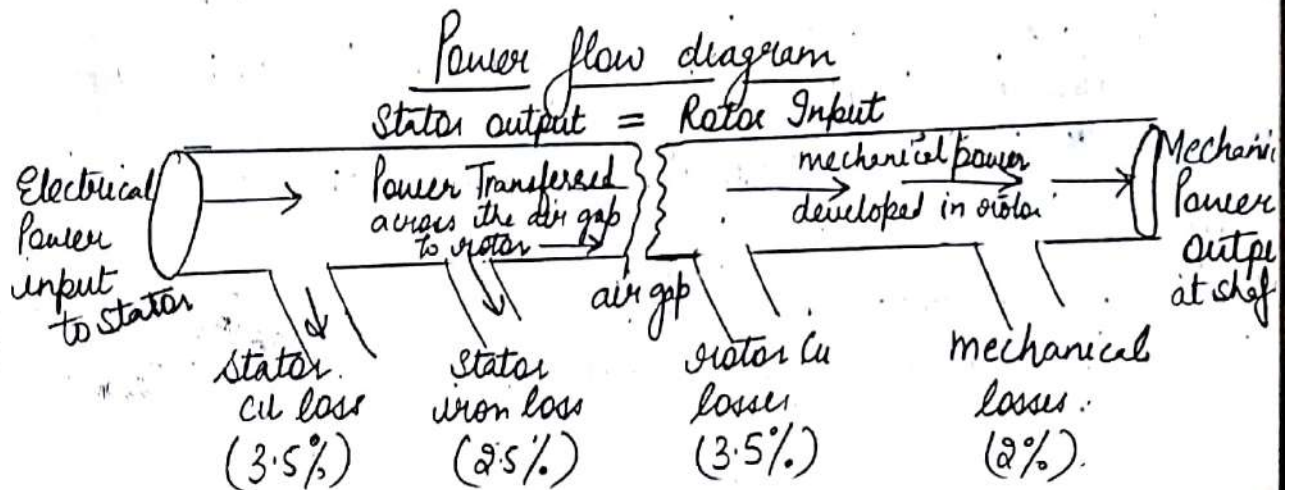 Power flow diagram
Stator output = Rotor Input
Electrical
Power
input
to Stator
Power Transferred
across the air gap
to rotor
air gap
mechanical power
developed in rotor
Mechani
Power
Outpu
at shaf
Stator
cu loss
(3.5%)
Stator
iron loss
(2.5%)
rotor Cu
losses
(3.5%)
mechanical
losses.
(2%).